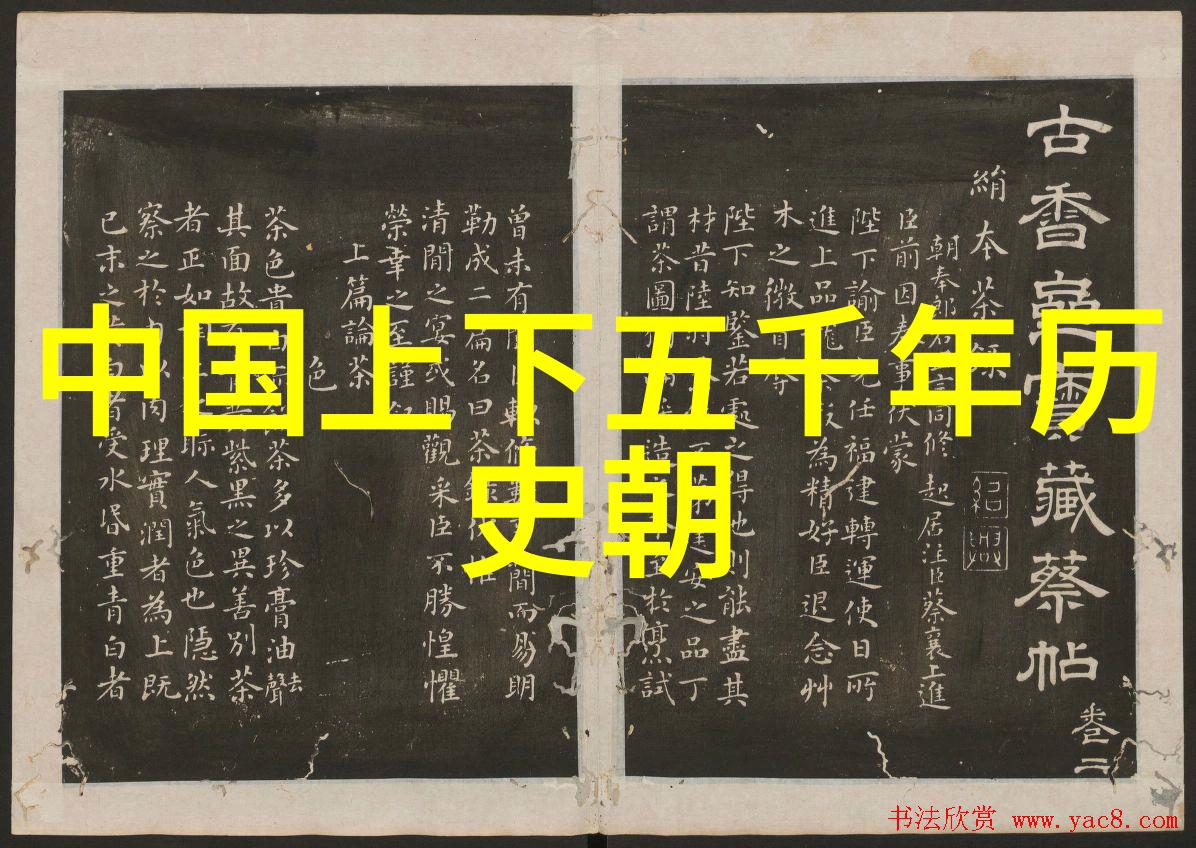 中国上下五千年历
史朝
古香齋寶藏蔡帖
卷二
絹本茶錄
紹興
朝奉郎右正言同修起居注臣蔡襄上進
臣前因奏事伏蒙
陛下諭臣先任福建轉運使日所
進上品龍茶最為精好臣退念艸
木之微首辱
陛下知鑒若處之得地則能盡其
材昔陸羽不第建安之品丁
謂茶圖獨論造至於烹試
曾未有聞臣輒條數事簡而易明
勒成二篇名曰茶錄伏惟
清閒之宴或賜觀采臣不勝惶懼
榮幸之至謹敘
上篇論茶
色
茶色貴白而餅茶多以珍膏油去聲
其面故有青黃紫黑之異善別茶
者正如相工之眎人氣色也隱然
察之於內以肉理實潤者為上既
已末之黃白者受水昏重青白者
书法欣赏 www.yac8.com